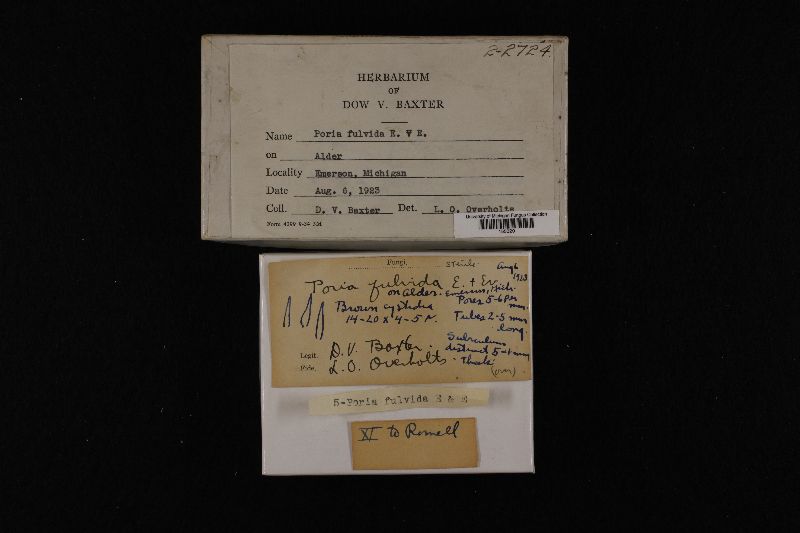 2-2724.
HERBARIUM
OF
DOW V. BAXTER
Name Poria fulvida E. & E.
on Alder
Locality Emerson, Michigan
Date Aug. 6, 1923
Coll. D. V. Baxter Det. L. O. Overholts
University of Michigan Fungus Collection
Fungi.
sterile
Aug 6
1923
Poria fulvida E. + Ev.
on alder. Emerson, Mich.
Brown cystidia
14-20 x 4-5 µ.
Pores 5-6 per
mm.
Tubes 2-5 mm
long.
Subiculum
distinct
mm
Thick
Legit. D. V. Baxter.
Fide. L. O. Overholts.
(over)
5-Poria fulvida E & E
XI to Romell